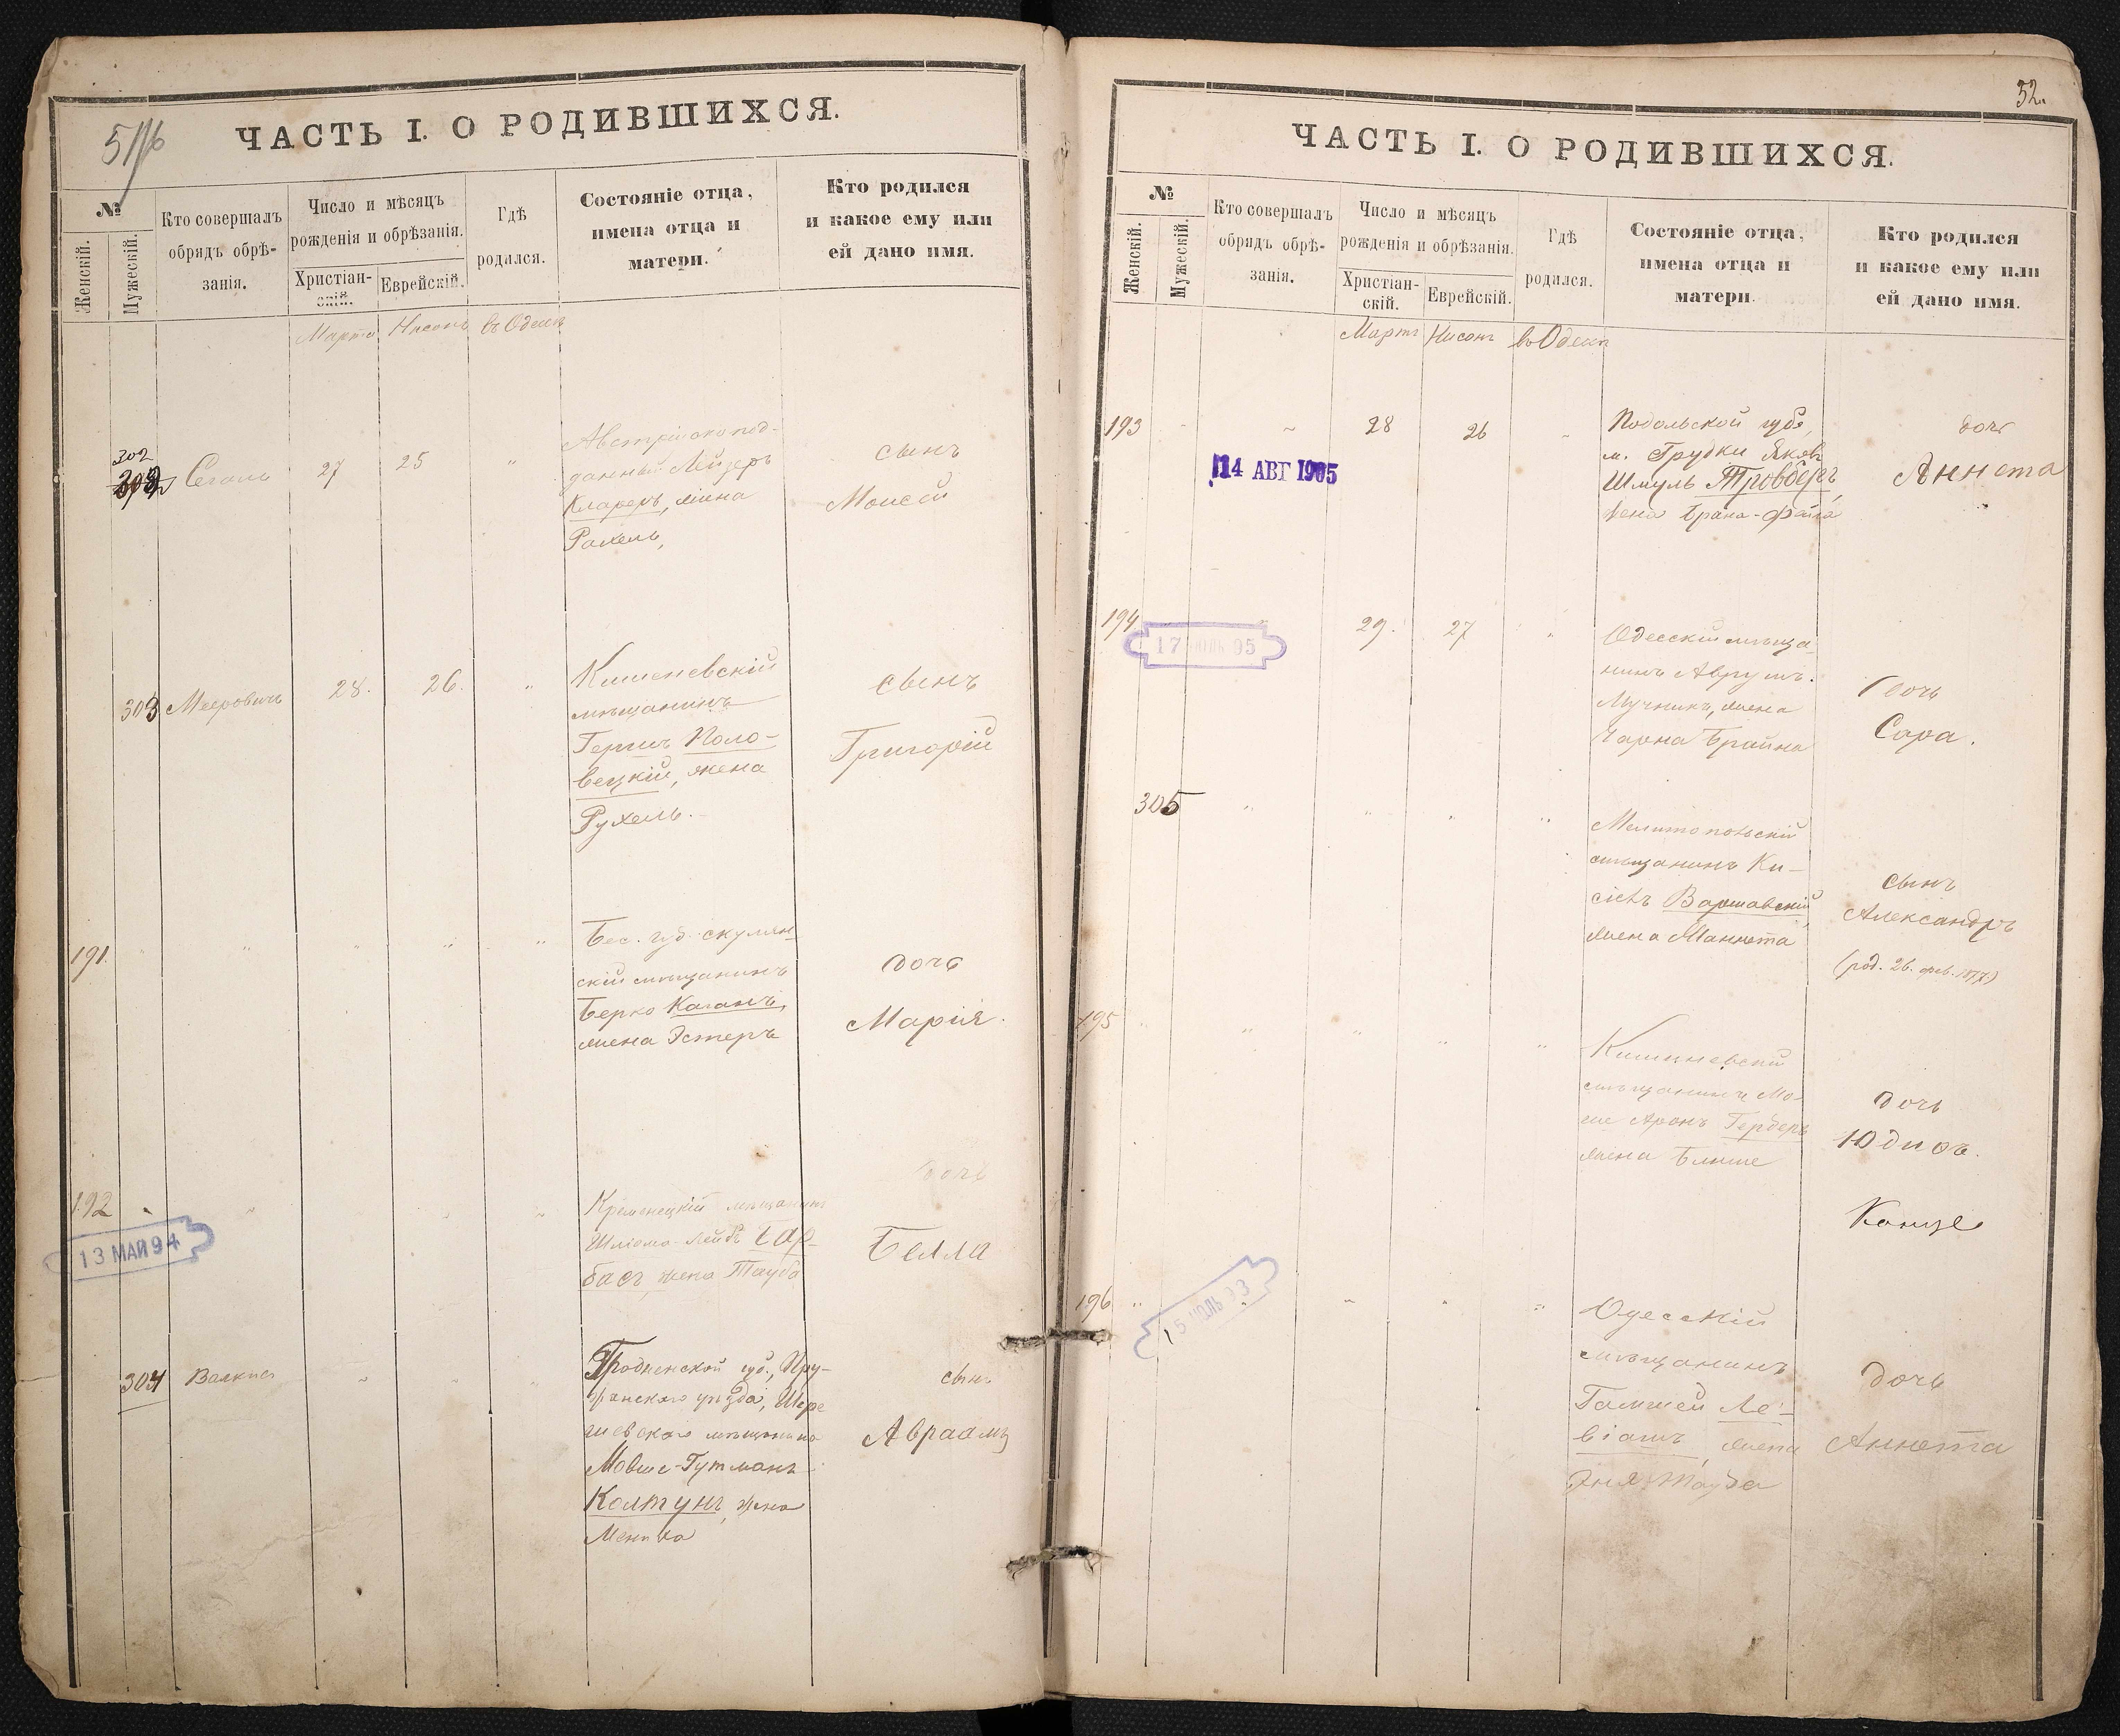 ЧАСТЬ I. О РОДИВШИХСЯ.
№
Женскій.
Мужескій.
Кто совершалъ
обрядъ обрѣ-
занія.
Число и мѣсяцъ
рожденія и обрѣзанія.
Христіан-
скій.
Еврейскій.
Гдѣ
родился.
Состояніе отца,
имена отца и
матери.
Кто родился
и какое ему или
ей дано имя.
Мартъ Нисонъ въ Одессѣ
302
Сегаль 27 25 "
Австрійско под-
данный Лейзеръ
Клареръ, жена
Рахель,
сынъ
Моисей
303 Мееровичъ 28. 26. "
Кишеневскій
мѣщанинъ
Гершъ Поло-
вецкій, жена
Рухель.
сынъ
Григорій
191. " " " " "
Бес. губ. скулян-
скій мѣщанинъ
Берко Каганъ,
жена Эстеръ
дочь
Марія.
192
13 МАЙ 94
Кременецкій мѣщанинъ
Шліома-Лейбъ Бар-
басъ жена Тауба
дочь
Белла
304
Гродненской губ., Пру-
жанскаго уѣзда, Шере
шевскаго мѣщанина
Мовше-Гутманъ
Колтунъ, жена
сынъ
Авраамъ
52.
ЧАСТЬ I. О РОДИВШИХСЯ.
№
Женскій.
Мужескій.
Кто совершалъ
обрядъ обрѣ-
занія.
Число и мѣсяцъ
рожденія и обрѣзанія.
Христіан-
скій.
Еврейскій.
Гдѣ
родился.
Состояніе отца,
имена отца и
матери.
Кто родился
и какое ему или
ей дано имя.
Мартъ Нисонъ въ Одессѣ
193 28 26
14 АВГ 1905
Подольской губ.,
м. Грудки Янкель
Шмуль Тровберъ,
жена Брана-Файга
дочь
Аннета
194 29. 27 "
17 ЮЛЬ 95
Одесскій мѣща-
нинъ Аврумъ
Мучникъ, жена
Чарна Брайна
дочь
Сара.
305 " " " "
Мелитопольскій
мѣщанинъ Ки-
сіель Варшавскій,
жена Маннета
сынъ
Александръ
(род. 26. фев. 1877)
195 " " " " "
Кишиневскій
мѣщанинъ Мо-
ше Аронъ Герберъ
жена Блюме
дочь
Юдиѳь.
196 "
15 ЮЛЬ 93
Одесскій
мѣщанинъ
Гамшей Ле-
віашъ, жена
Эня Тауба
дочь
Аннета